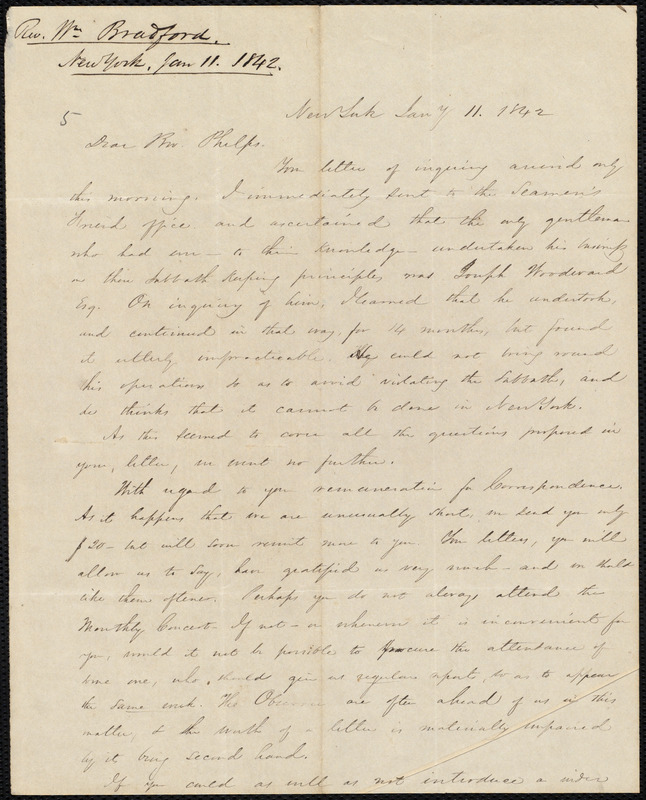 Rev. Wm Bradford.
New York, Jan 11. 1842.
5
New York Jany 11. 1842
Dear Bro. Phelps.
Your letter of inquiry arrived only
this morning. I immediately sent to the Seamen's
Friend office and ascertained that the only gentleman
who had ever – to their knowledge – undertaken his business
on their Sabbath keeping principles was Joseph Woodward
Esq. On inquiry of him, I learned that he undertook,
and continued in that way, for 14 months, but found
it utterly impracticable. He could not bring round
his operations so as to avoid violating the Sabbath, and
he thinks that it cannot be done in New York.
As this seemed to cover all the questions proposed in
your letter, we went no further.
With regard to your remuneration for Correspondence.
As it happens that we are unusually short, we send you only
$20 – but will soon remit more to you. Your letters, you will
allow us to say, have gratified us very much – and we should
like them oftener. Perhaps you do not always attend the
Monthly Concert – If not – or whenever it is inconvenient for
you, would it not be possible to procure the attendance of
some one, who should give us regular reports, so as to appear
the same week. The Observer are often ahead of us in this
matter, & the worth of a letter is materially impaired
by its being second hand.
If you could as well as not introduce a wider